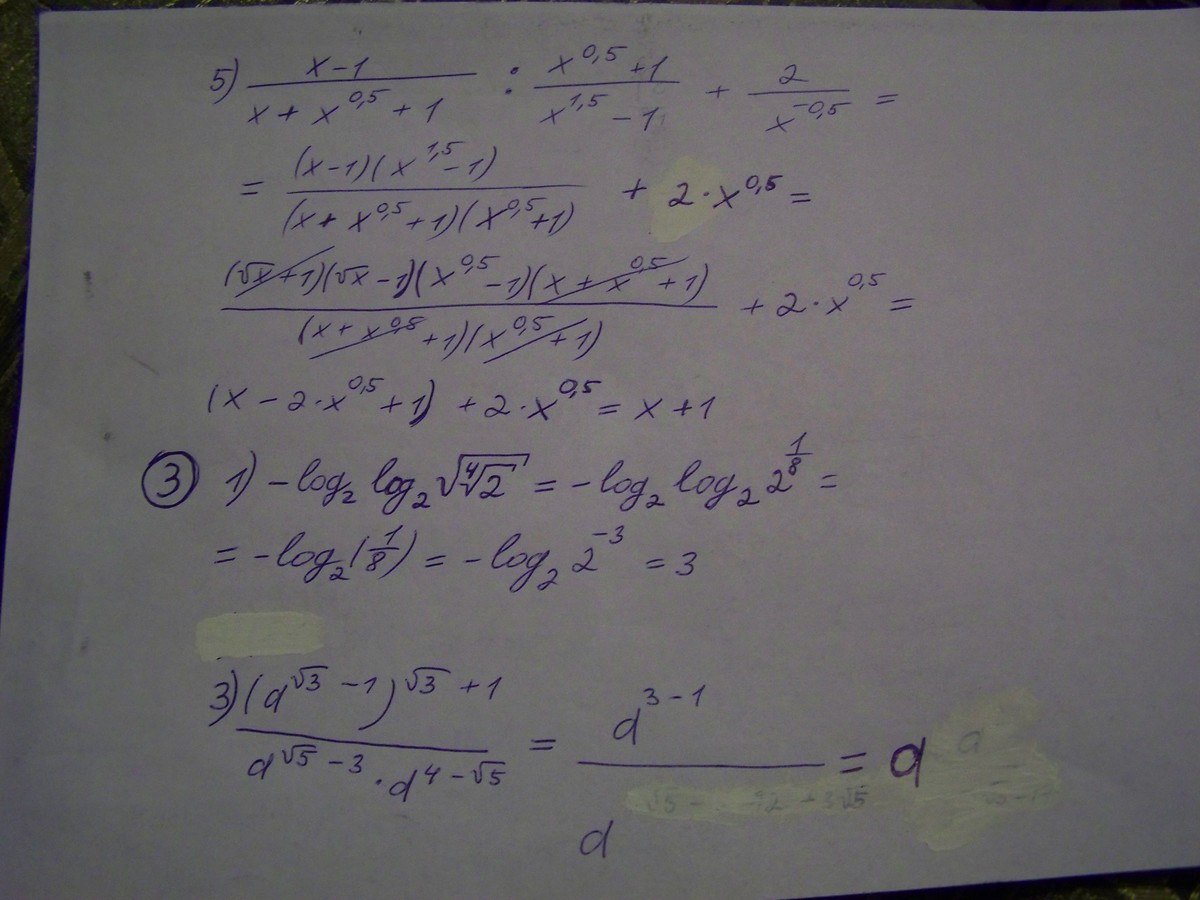 5) (x-1)/(x + x^0,5 + 1) : (x^0,5 + 1)/(x^1,5 - 1) + 2/(x^-0,5) =
= ((x-1)(x^1,5 - 1))/((x + x^0,5 + 1)(x^0,5 + 1)) + 2 · x^0,5 =
((√x + 1)(√x - 1)(x^0,5 - 1)(x + x^0,5 + 1))/((x + x^0,8 + 1)(x^0,5 + 1)) + 2 · x^0,5 =
(x - 2 · x^0,5 + 1) + 2 · x^0,5 = x + 1
③ 1) -log₂ log₂ √(∜2) = -log₂ log₂ 2^(1/8) =
= -log₂(1/8) = -log₂ 2^-3 = 3
3) (a^(√3 - 1))^(√3 + 1)/(a^(√5 - 3) · a^(4 - √5)) = a^(3-1)/a = a